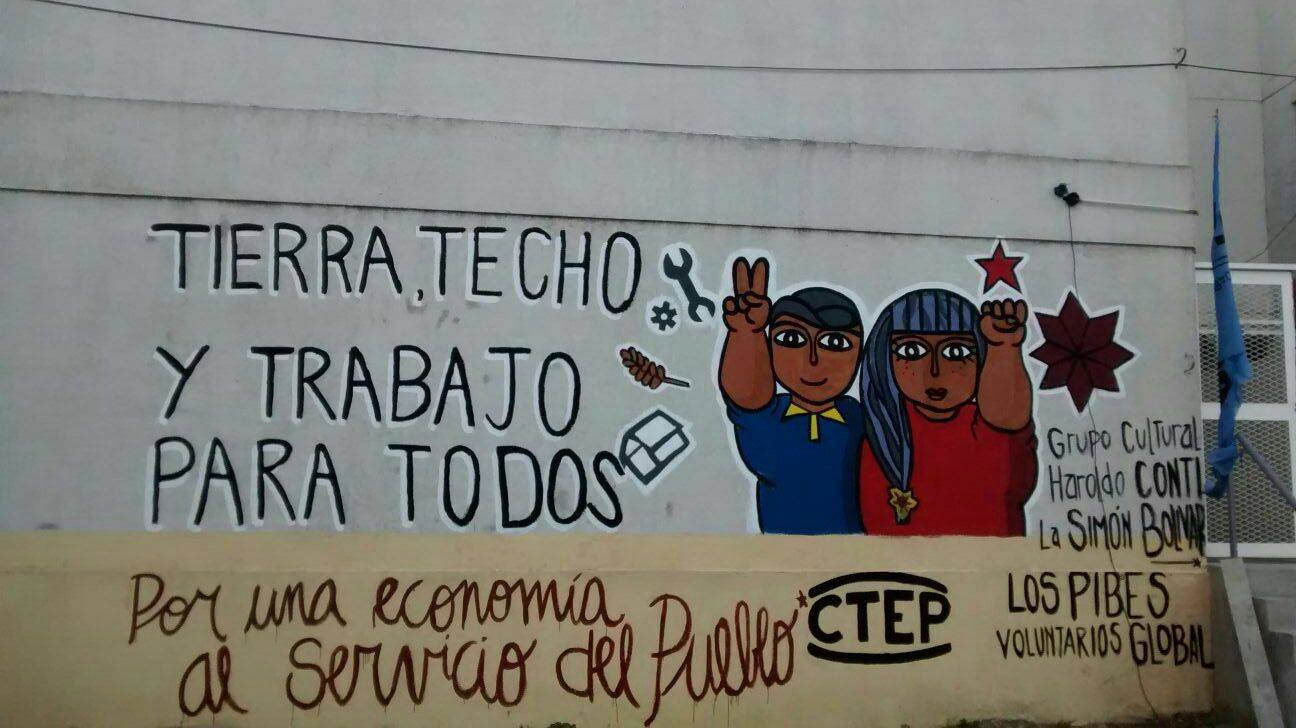 TIERRA, TECHO
Y TRABAJO
PARA TODOS
Grupo Cultural
Haroldo CONTI
La SIMÓN BOLIVAR
Por una economía
al servicio del Pueblo
CTEP
LOS PIBES
VOLUNTARIOS GLOBAL